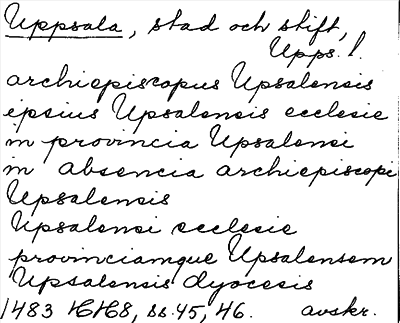 Uppsala, stad och stift,
Upps. l.
archiepiscopus Upsalensis
ipsius Upsalensis ecclesie
in provincia Upsalensi
in absencia archiepiscopi
Upsalensis
Upsalensi ecclesie
provinciamque Upsalensem
Upsalensis dyocesis
1483 HH8, ss. 45, 46. avskr.